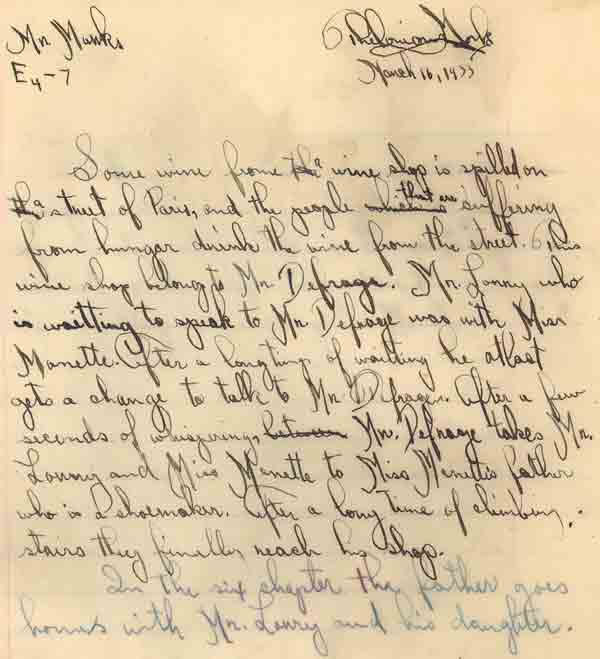 Mr. Munks Thelonious Monk
E4-7 March 16, 1933
Some wine frome a wine shop is spilled on
a street of Paris, and the people that are suffering
from hungar drink the wine from the street. This
wine shop belongs to Mr. Defrage. Mr. Lorry who
is waitting to speak to Mr. Defrage was with Miss
Manette. After a long time of waiting he atlast
gets a change to talk to Mr. Defrager. After a few
seconds of whispering, between Mr. Defrage takes Mr.
Lorry and Miss Manette to Miss Manette's father
who is a shoemaker. After a long time of climbing
stairs they finally reach his shop.
In the six chepter the father goes
homes with Mr. Lorry and his daughter.